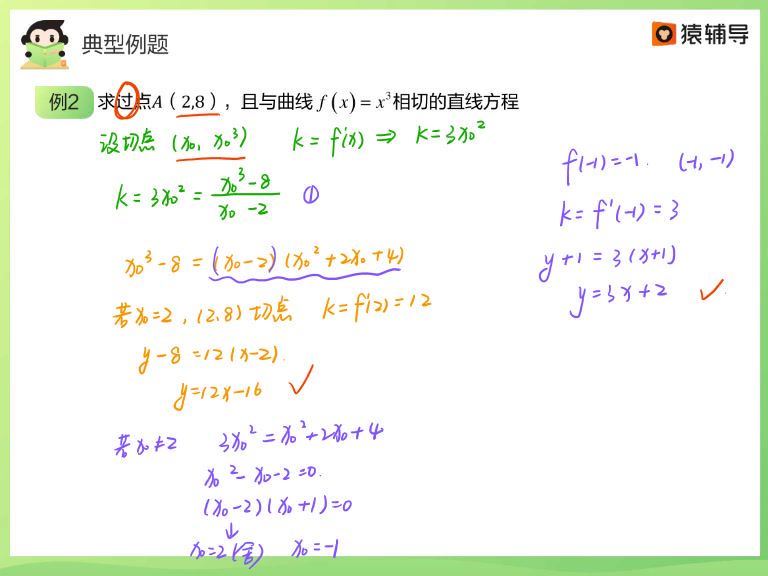 典型例题
猿辅导
例2 求过点A（2,8），且与曲线 f(x)=x³相切的直线方程
设切点 (x₀, x₀³) k=f'(x) ⇒ k=3x₀²
k=3x₀²=(x₀³-8)/(x₀-2) ①
x₀³-8=(x₀-2)(x₀²+2x₀+4)
若x₀=2, (2.8)切点 k=f'(2)=12
y-8=12(x-2).
y=12x-16 ✓
若x₀≠2 3x₀²=x₀²+2x₀+4
x₀²-x₀-2=0.
(x₀-2)(x₀+1)=0
↓
x₀=2(舍) x₀=-1
f(-1)=-1. (-1,-1)
k=f'(-1)=3
y+1=3(x+1)
y=3x+2 ✓